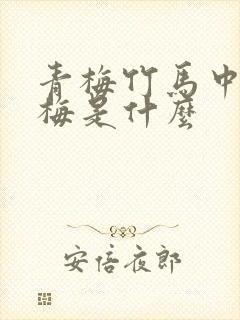 青梅竹馬中
梅是什麼
安倍夜郎